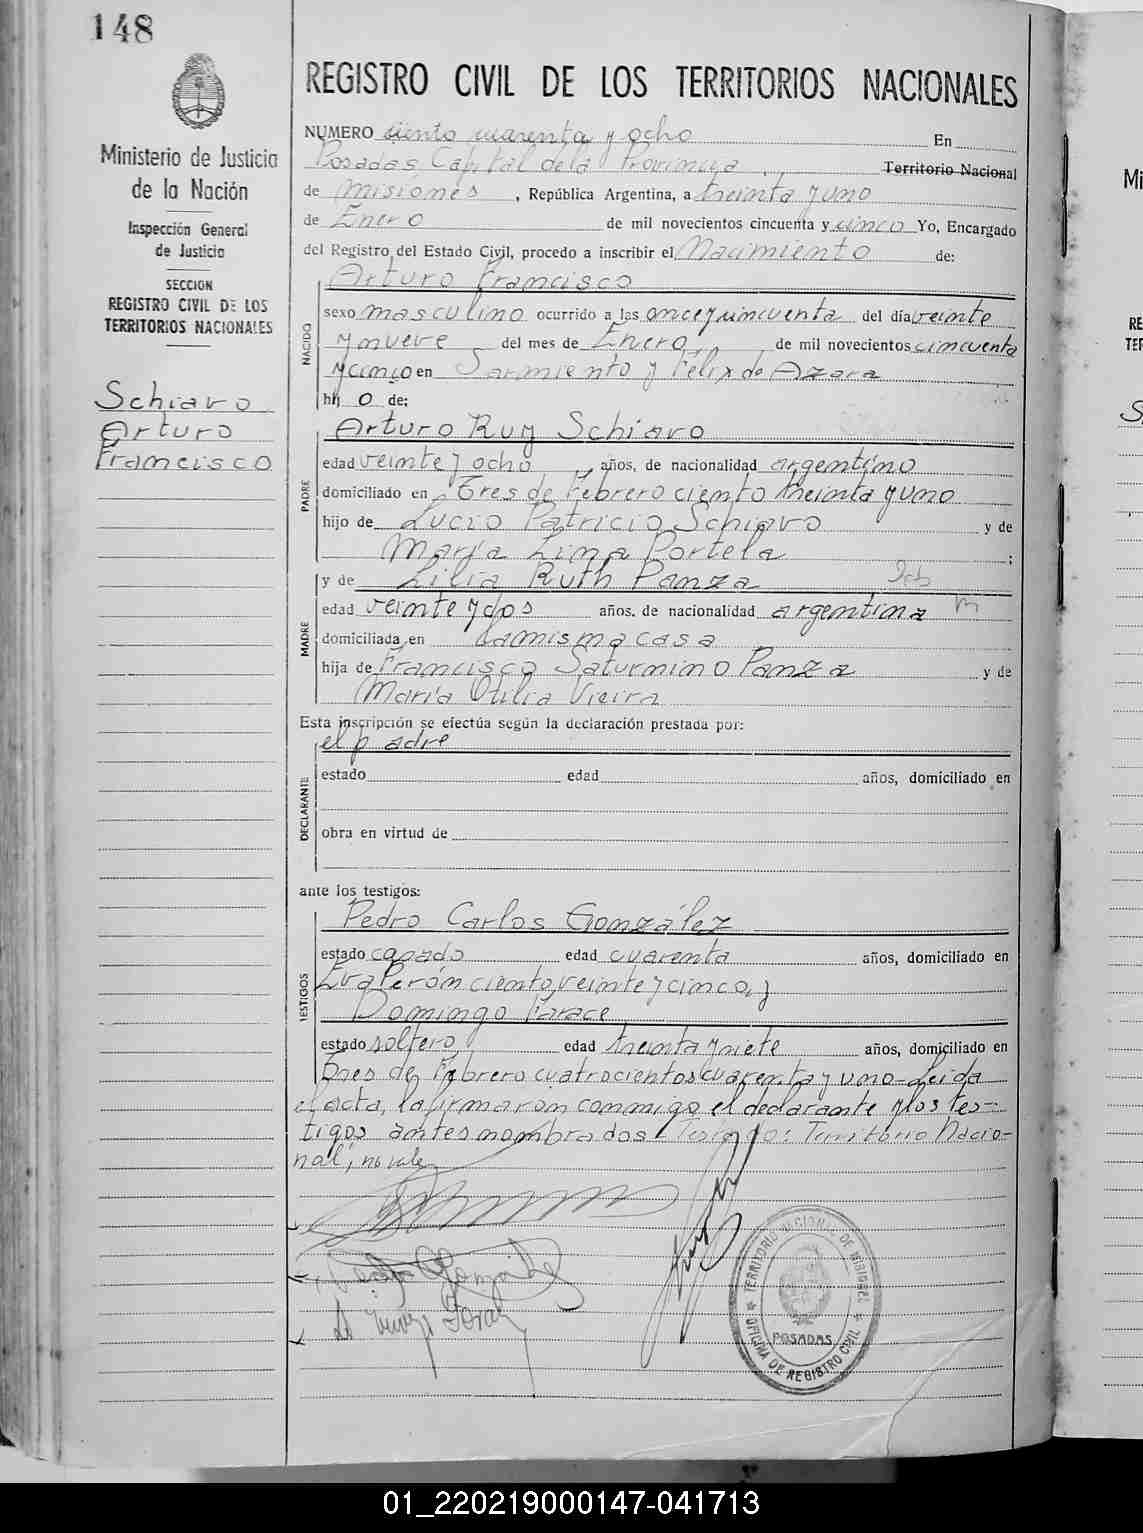 148
Ministerio de Justicia
de la Nación
Inspección General
de Justicia
SECCION
REGISTRO CIVIL DE LOS
TERRITORIOS NACIONALES
Schiavo
Arturo
Francisco
REGISTRO CIVIL DE LOS TERRITORIOS NACIONALES
NUMERO ciento cuarenta y ocho En
Posadas Capital de la Provincia Territorio Nacional
de Misiones, República Argentina, a treinta y uno
de Enero de mil novecientos cincuenta y cinco Yo, Encargado
del Registro del Estado Civil, procedo a inscribir el Nacimiento de:
NACIDO
Arturo Francisco
sexo masculino ocurrido a las once y cincuenta del día veinte
y nueve del mes de Enero de mil novecientos cincuenta
y cinco en Sarmiento y Félix de Azara
hij o de:
PADRE
Arturo Ruy Schiavo
edad veinte y ocho, años, de nacionalidad argentino
domiciliado en Tres de Febrero ciento treinta y uno
hijo de Lucio Patricio Schiavo y de
María Lina Portela ;
MADRE
y de Lilia Ruth Panza
edad veinte y dos años. de nacionalidad argentina
domiciliada en la misma casa
hija de Francisco Saturnino Panza y de
María Otilia Vieira
Esta inscripción se efectúa según la declaración prestada por:
DECLARANTE
el padre
estado edad años, domiciliado en
obra en virtud de
ante los testigos:
TESTIGOS
Pedro Carlos González
estado casado edad cuarenta años, domiciliado en
Eva Perón ciento veinte y cinco, y
Domingo Farace
estado soltero edad treinta y siete años, domiciliado en
Tres de Febrero cuatrocientos cuarenta y uno - Leida
el acta, la firmaron conmigo el declarante y los tes-
tigos antes nombrados - Testado: Territorio Nacio-
nal, no vale
TERRITORIO NACIONAL DE MISIONES
POSADAS
OFICINA DE REGISTRO CIVIL
Mi
RE
TER
S
01_220219000147-041713